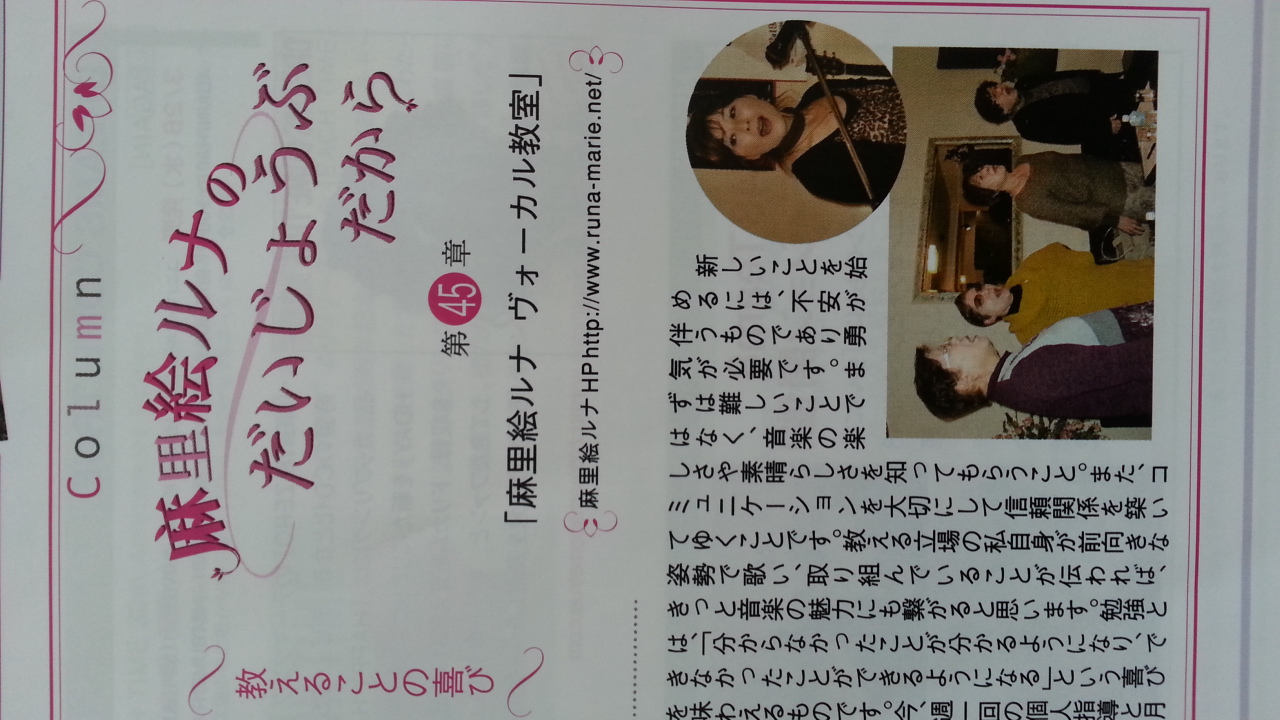 Column
麻里絵ルナの
だいじょうぶ
だから
第45章
「麻里絵ルナ ヴォーカル教室」
麻里絵ルナHP http://www.runa-marie.net/
教えることの喜び
新しいことを始
めるには、不安が
伴うものであり勇
気が必要です。ま
ずは難しいことで
はなく、音楽の楽
しさや素晴らしさを知ってもらうこと。また、コ
ミュニケーションを大切にして信頼関係を築い
てゆくことです。教える立場の私自身が前向きな
姿勢で歌い、取り組んでいることが伝われば、
きっと音楽の魅力にも繋がると思います。勉強と
は、「分からなかったことが分かるようになり、で
きなかったことができるようになる」という喜び
を味わえるものです。今、週一回の個人指導と月